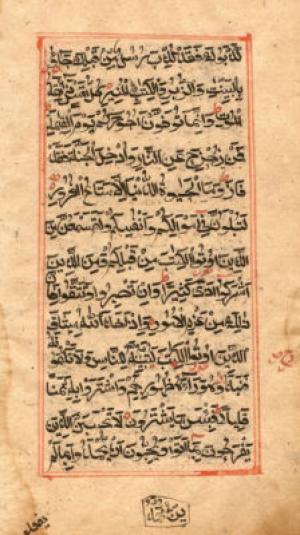 كذبوك فقد كذب رسل من قبلك جاؤ
بالبينت والزبر والكتب المنير كل نفس ذائقة
الموت وانما توفون اجوركم يوم القيمة
فمن زحزح عن النار وادخل الجنة فقد
فاز وما الحيوة الدنيا الا متاع الغرور
لتبلون في اموالكم وانفسكم ولتسمعن من
الذين اوتوا الكتب من قبلكم ومن الذين
اشركوا اذى كثيرا وان تصبروا وتتقوا فان
ذلك من عزم الامور واذ اخذ الله ميثاق
الذين اوتوا الكتب لتبيننه للناس ولا تكتمونه
فنبذوه وراء ظهورهم واشتروا به ثمنا
قليلا فبئس ما يشترون لا تحسبن الذين
يفرحون بما اتوا ويحبون ان يحمدوا بما لم